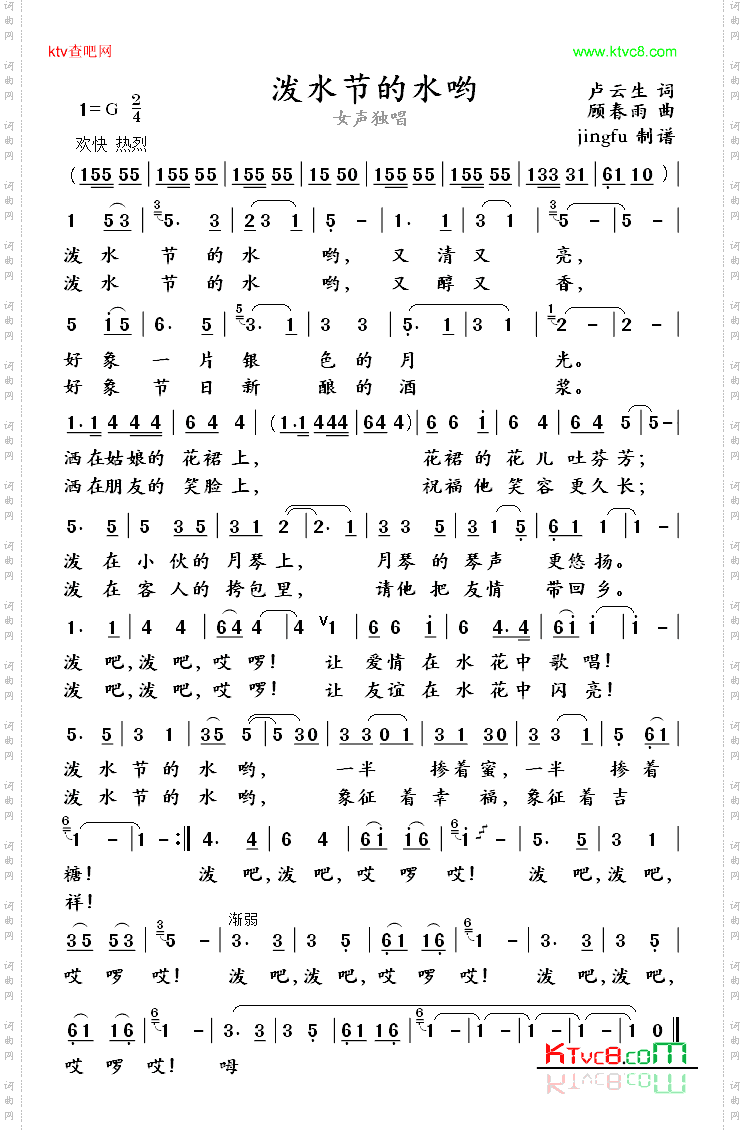 ktv查吧网
www.ktvc8.com
泼水节的水哟
女声独唱
1=G 2/4
卢云生 词
顾春雨 曲
jingfu 制谱
欢快 热烈
(155 55|155 55|155 55|15 50|155 55|155 55|133 31|61 10)|
1 53|3 5. 3|23 1|5 -|1. 1|3 1|3 5 -|5 -|
泼水 节的水 哟, 又清又 亮,
泼水 节的水 哟, 又醇又 香,
5 i5|6. 5|5 3. 1|3 3 3|5. 1|3 1|1 2 -|2 -|
好象一片银 色的月 光。
好象节日新 酿的酒 浆。
1.1 4 44|6 4 4|(1.1 444|64 4)|6 6 i|64 6|6 4 5|5-|
洒在姑娘的 花裙上, 花裙的花儿吐芬芳;
洒在朋友的 笑脸上, 祝福他笑容更久长;
5. 5|5 35|31 2|2. 1|3 3 5|31 5|6 1 1|1 -|
泼在小伙的月琴上, 月琴的琴声 更悠扬。
泼在客人的挎包里, 请他把友情 带回乡。
1. 1|4 4|64 4|4 V1|6 6 i|6 4.4|6i i|i -|
泼吧,泼吧,哎啰! 让爱情在水花中歌唱!
泼吧,泼吧,哎啰! 让友谊在水花中闪亮!
5. 5|3 1|35 5|5 30|31 3|31 30|3 5|5 61|
泼水节的水哟, 一半 掺着蜜,一半 掺着
泼水节的水哟, 象征着幸 福,象征着吉
6 1 -|1 -:|4. 4|6 4|6i i6|6 i -|5. 5|3 1|
糖! 泼吧,泼吧,哎啰哎! 泼吧,泼吧,
祥!
渐弱
35 53|3 5 -|3. 3|3 5|61 16|6 1 -|3. 3|3 5|
哎啰哎! 泼吧,泼吧,哎啰哎! 泼吧,泼吧,
61 16|6 1 -|3. 3|3 5|61 16|6 1 -|1 -|1 -|1 0||
哎啰哎! 呣
KTvc8.com